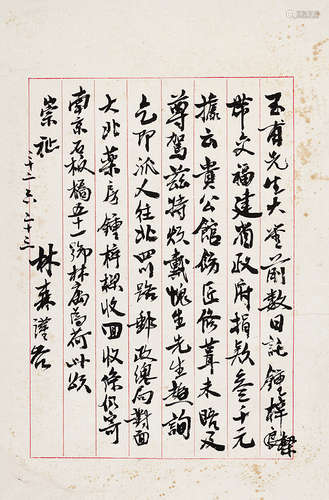 玉甫先生大鉴前数日託锺梓良
帶交福建省政府捐款叁千元
據云貴公館係匠修葺未晤及
尊駕兹特煩戴愧生先生趨詢
乞即派人往北四川路郵政總局對面
大北藥房锺梓樑收回收條仍寄
南京石板橋五十一號林寓為荷此頌
崇祉
林森謹啓
二十二六二十三